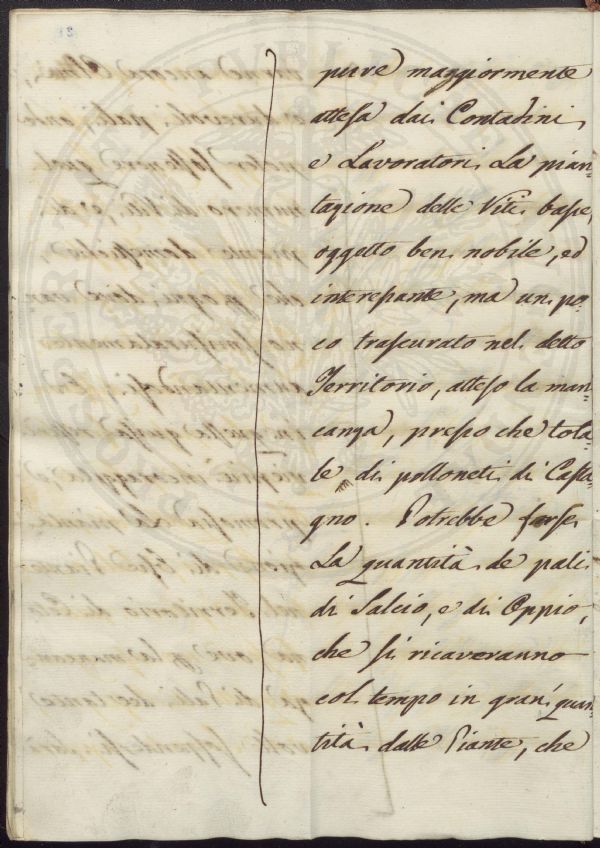 pure maggiormente
attesa dai Contadini,
e Lavoratori. La pian=
tagione delle Viti basse,
oggetto ben nobile, ed
interessante, ma un po=
co trascurato nel detto
Territorio, atteso la man=
canza, presso che tota=
le di polloneti di Casta=
gno. Potrebbe forse
La quantità de pali
di Salcio, e di Oppio,
che si ricaveranno
col tempo in gran quan=
tità dalle Piante, che